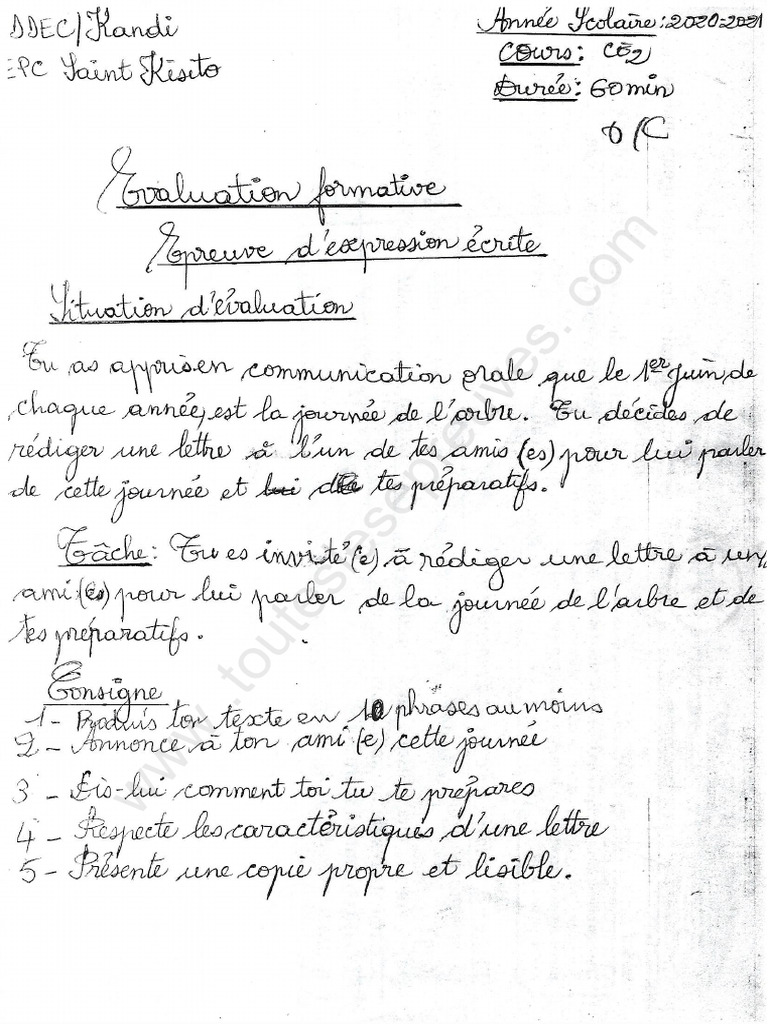 DDEC/Kandi
EPC Saint Kisito
Année Scolaire: 2020-2021
Cours: CE2
Durée: 60min
Evaluation formative
Epreuve d'expression écrite
Situation d'évaluation
Tu as appris en communication orale que le 1er Juin, de
chaque année, est la journée de l'arbre. Tu décides de
rédiger une lettre à l'un de tes amis (es) pour lui parler
de cette journée et de tes préparatifs.
Tâche: Tu es invité(e) à rédiger une lettre à un
ami (es) pour lui parler de la journée de l'arbre et de
tes préparatifs.
Consigne
1- Produis ton texte en 10 phrases au moins
2- Annonce à ton ami (e) cette journée
3- Dis-lui comment toi tu te prépares
4- Respecte les caractéristiques d'une lettre
5- Présente une copie propre et lisible.
www.toutesesepreuves.com